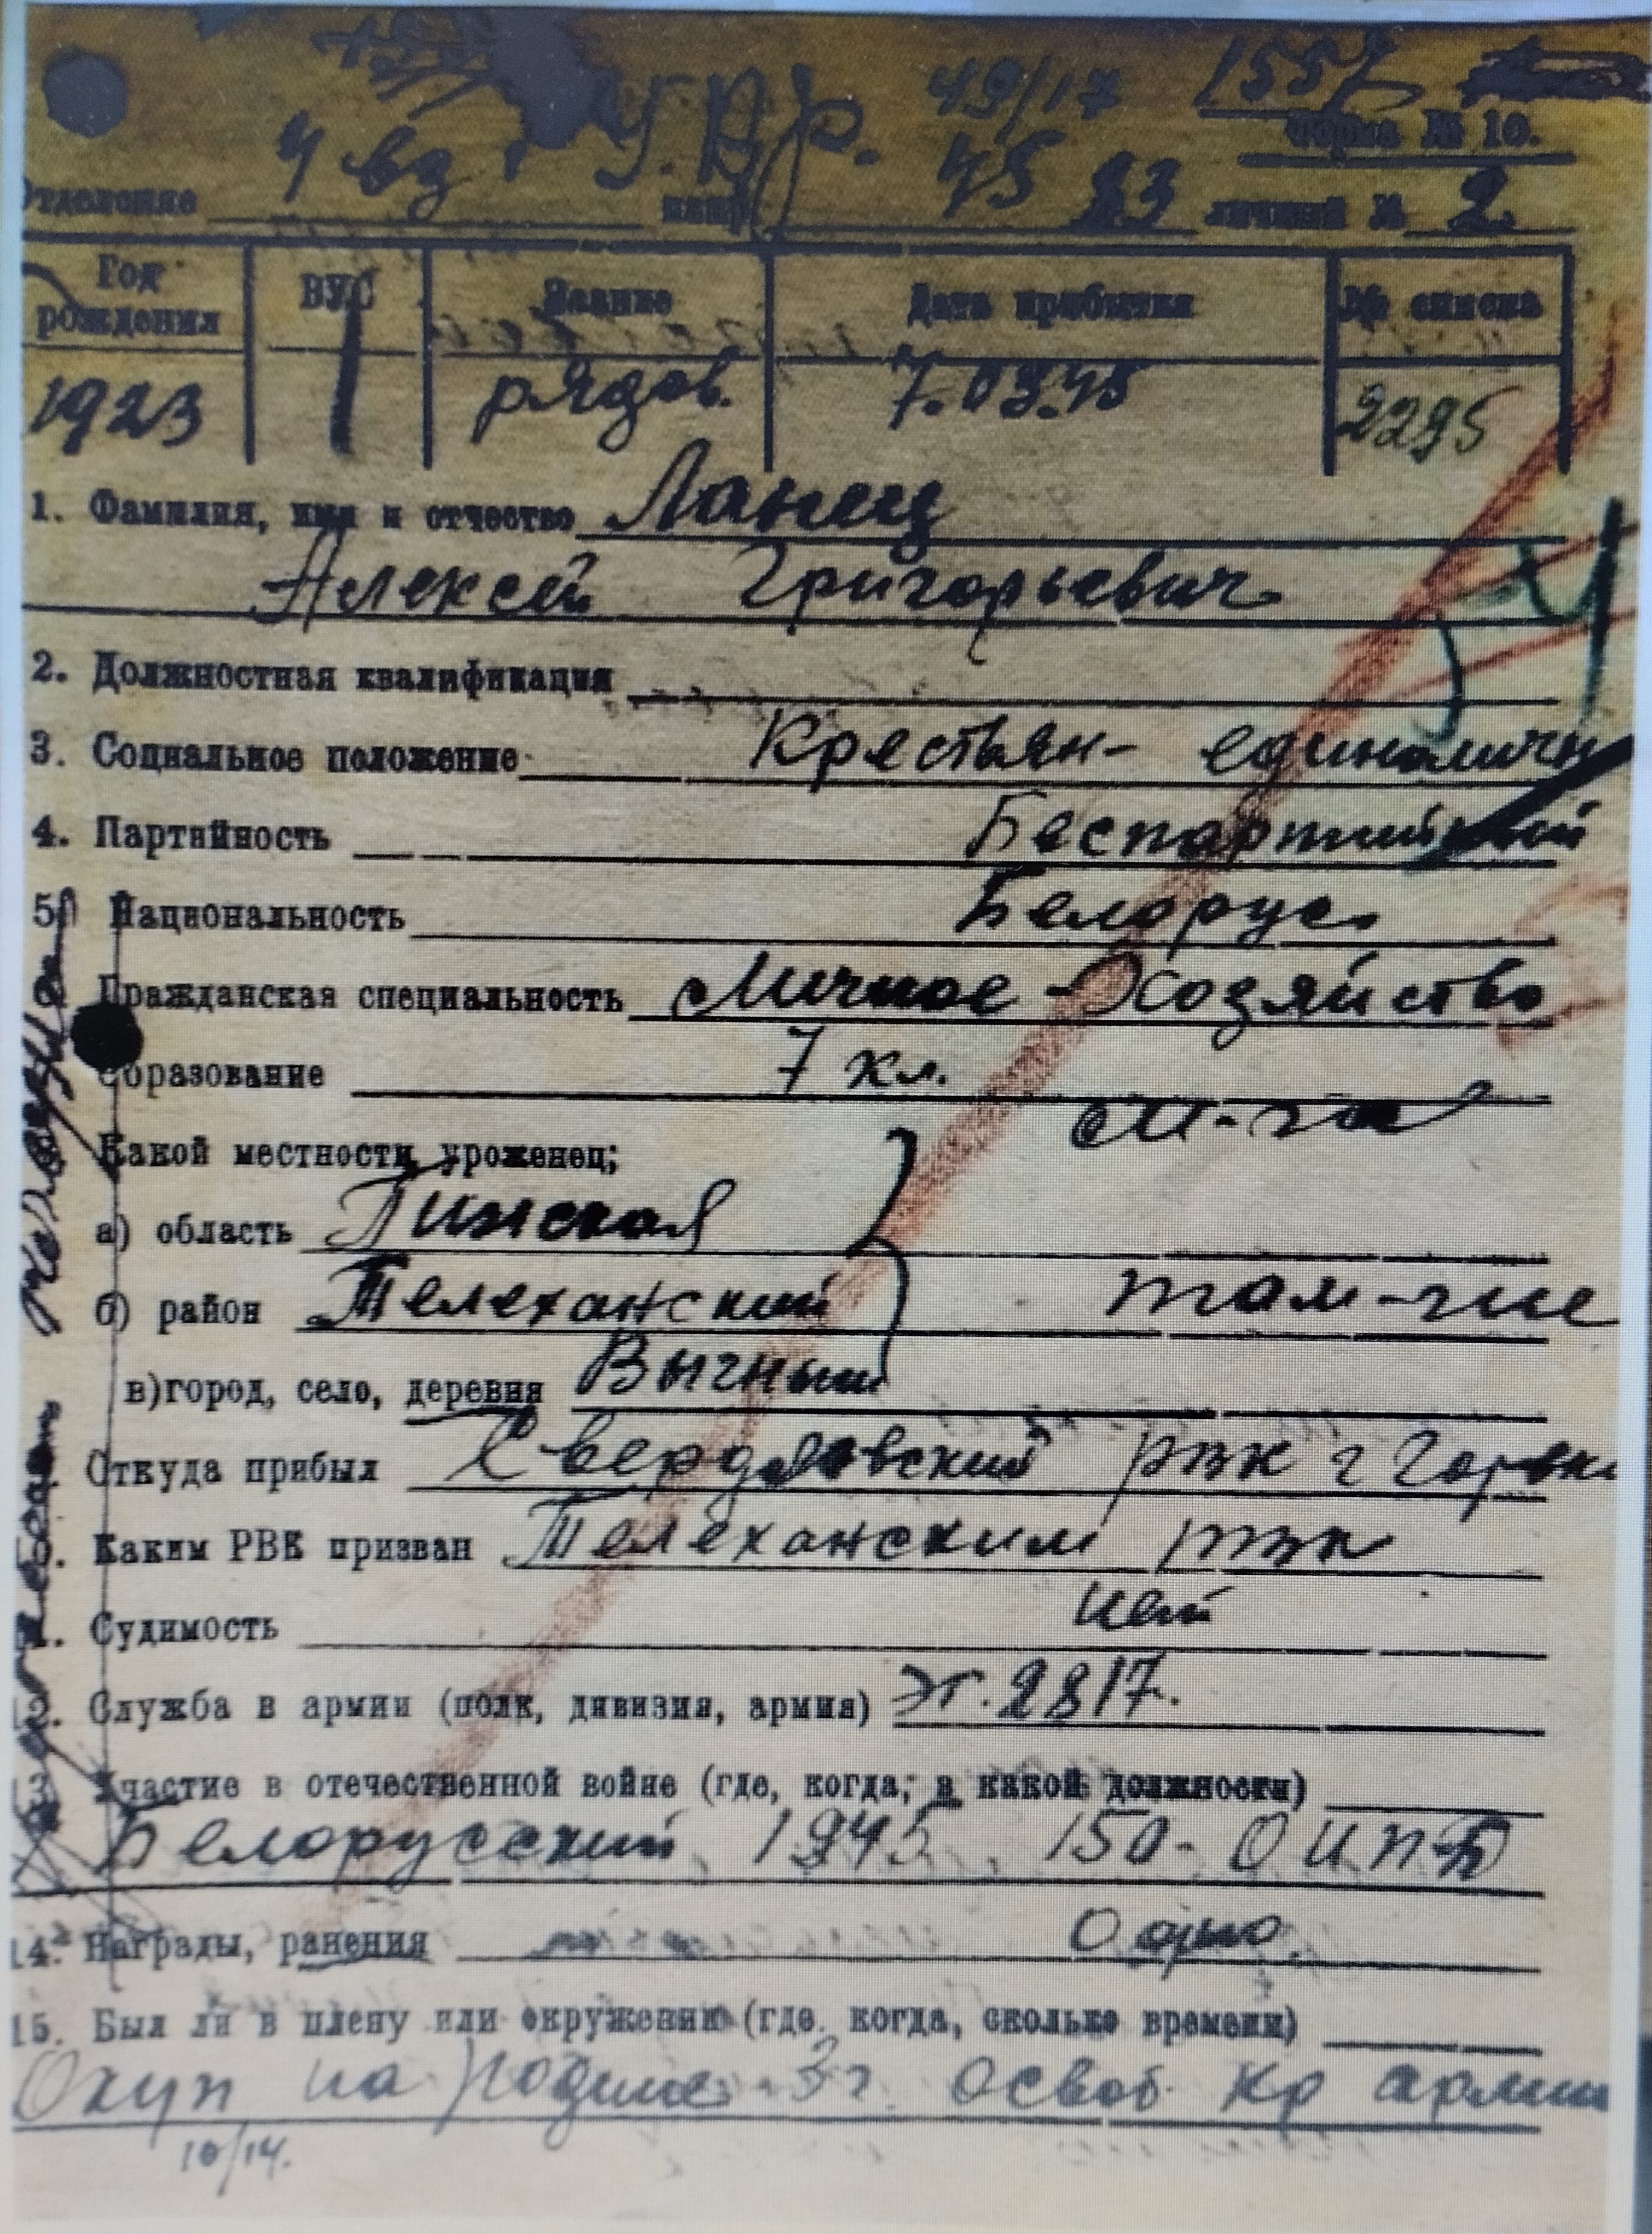 49/17 1557
Форма № 10.
4 вз. У.В.Р. 45 23
Отделение личный № 2.
Год рождения ВУС Звание Дата прибытия № списка
1923 рядов. 7.03.45 2295
1. Фамилия, имя и отчество Ланец
Алексей Григорьевич
2. Должностная квалификация
3. Социальное положение Крестьян- единоличн
4. Партийность Беспартийный
5 Национальность Белорус.
Гражданская специальность Личное Хозяйство
Образование 7 кл.
Какой местности уроженец;
а) область Пинская
б) район Телеханский там-же
в) город, село, деревня Выгнный
Откуда прибыл Свердловский рвк г Горьк
Каким РВК призван Телеханским рвк
Судимость нет
Служба в армии (полк, дивизия, армия) эт. 2817.
Участие в отечественной войне (где, когда, в какой должности)
Белорусский 1945 150- ОИПТБ
14. Награды, ранения Одно.
15. Был ли в плену или окружении (где, когда, сколько времени)
Окуп на родине 3 г. освоб. Кр армии
10/14.